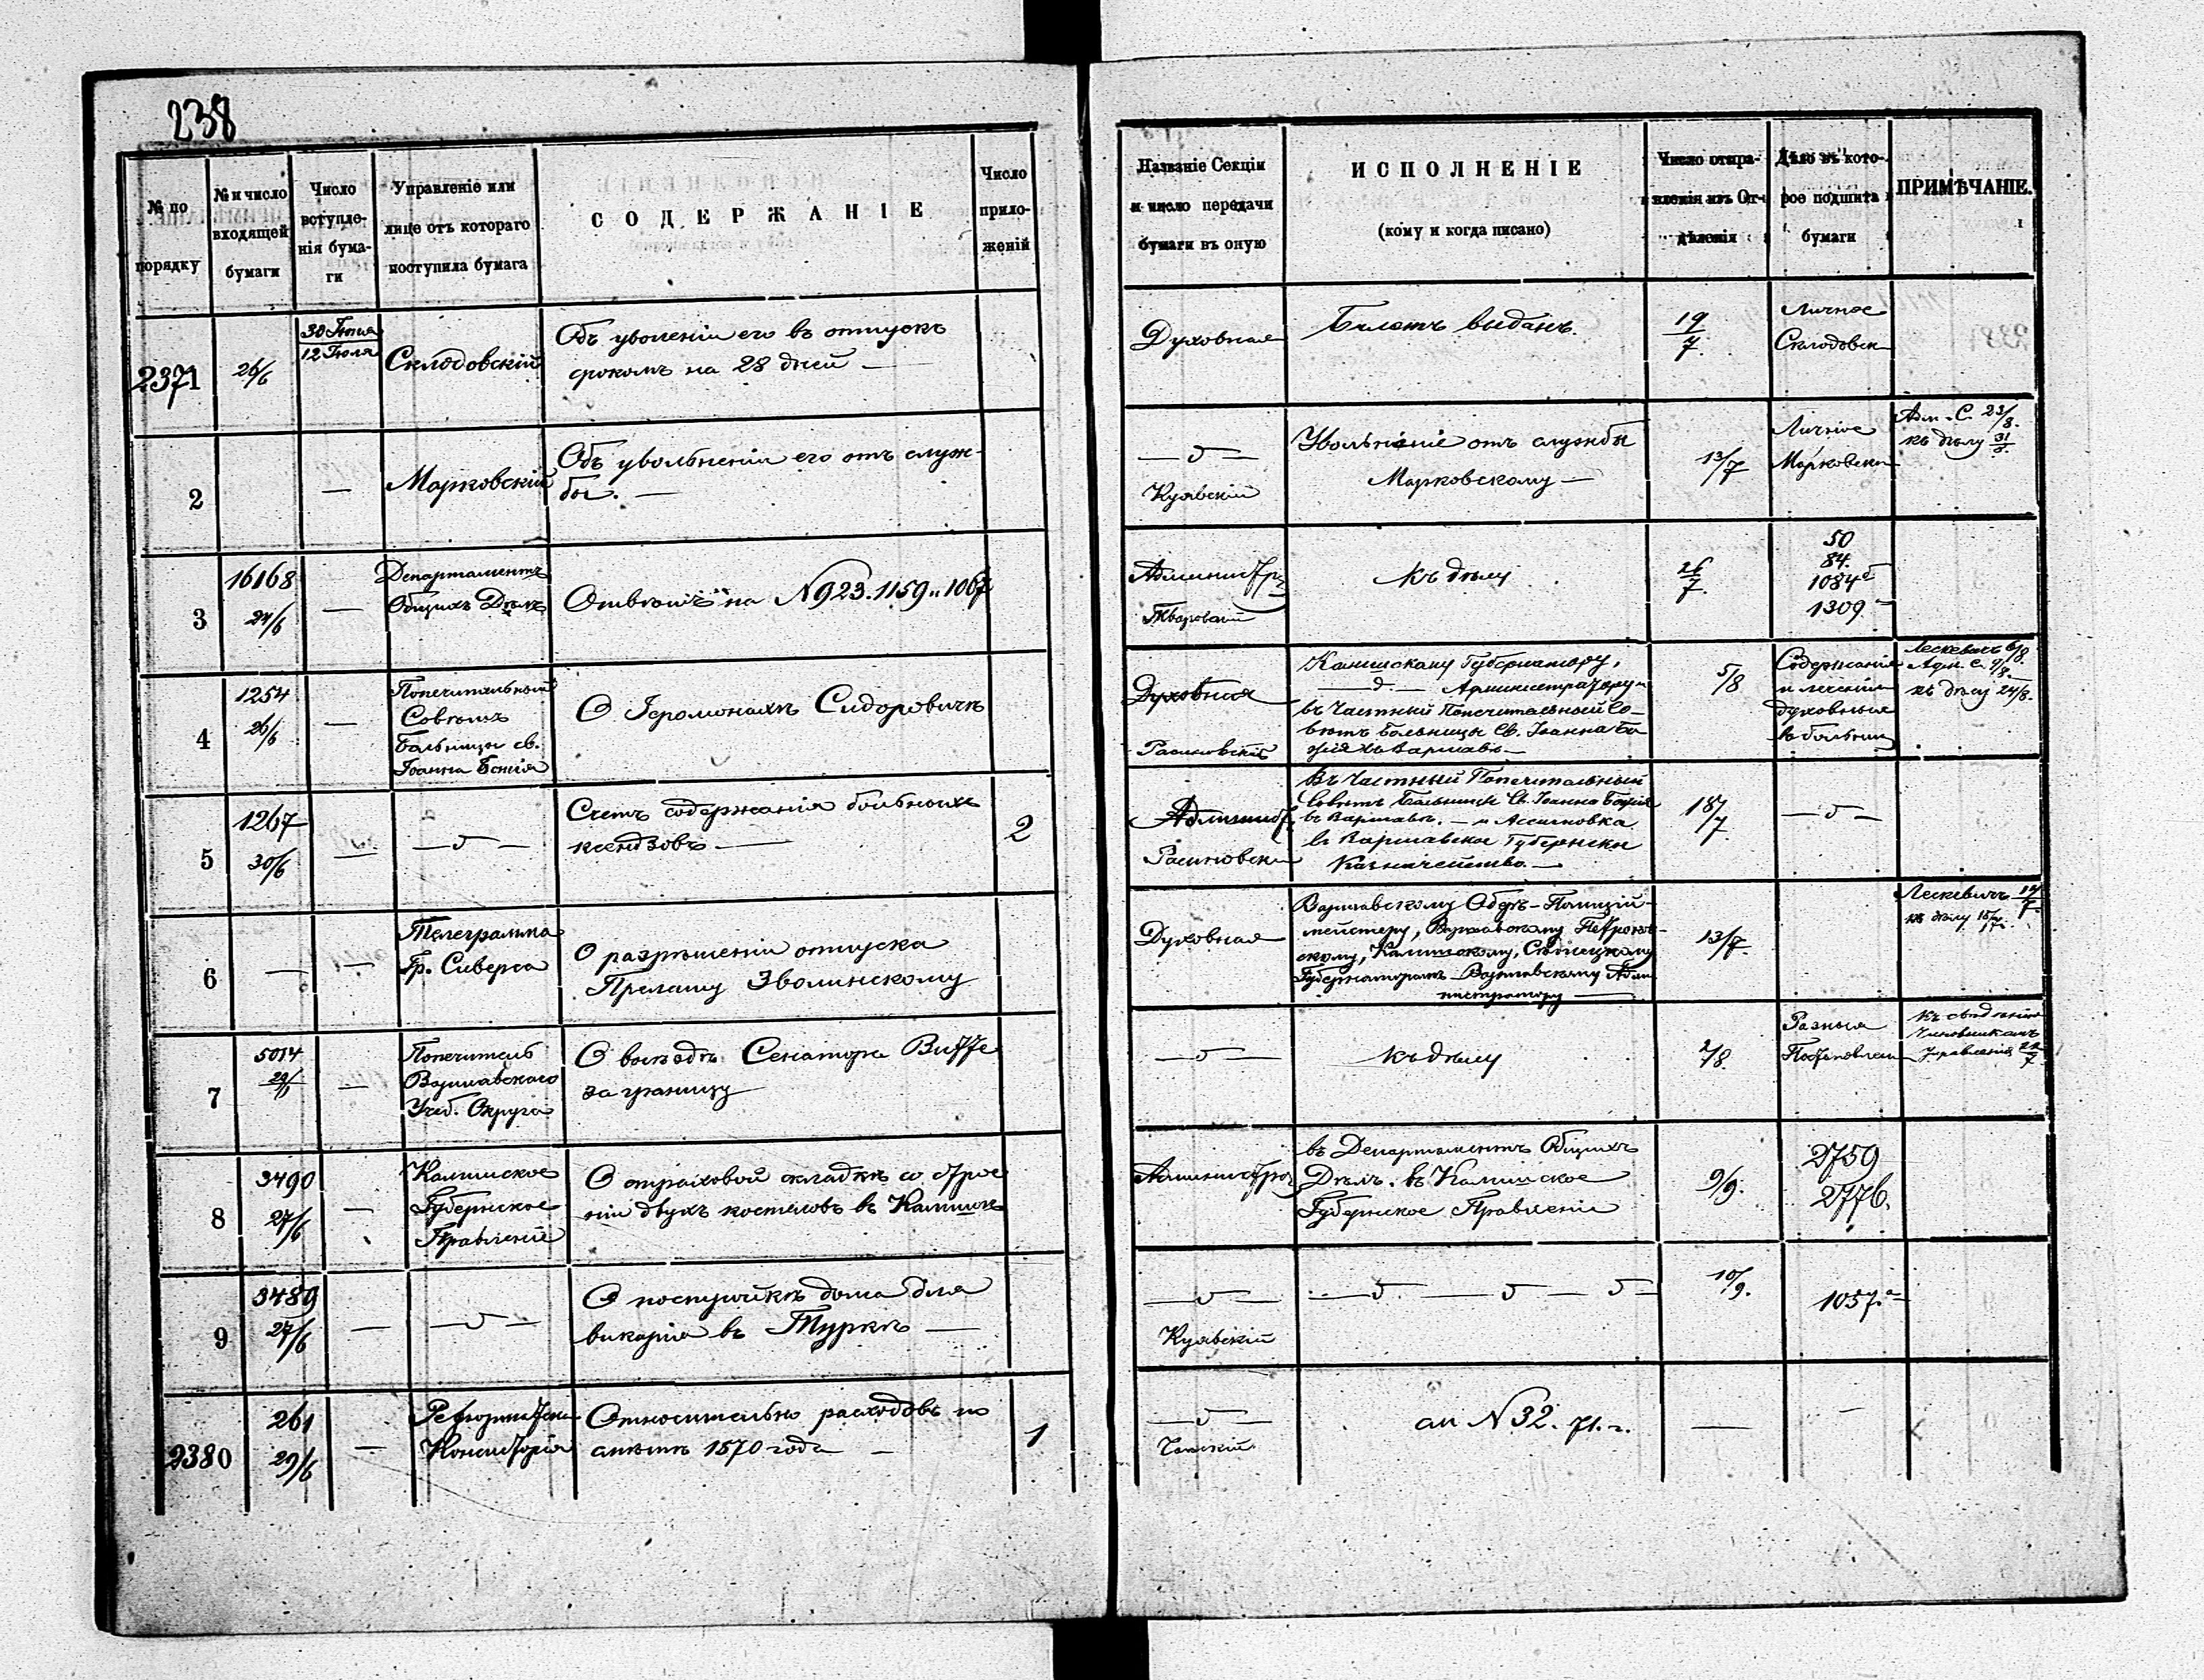 238
№ по порядку
№ и число входящей бумаги
Число вступле-
нія бума-
ги
Управленіе или
лице отъ котораго
поступила бумага
СОДЕРЖАНІЕ
Число
прило-
женій
Названіе Секціи
и число передачи
бумаги въ оную
ИСПОЛНЕНІЕ
(кому и когда писано)
Число отпра-
вленія изъ От-
дѣленія
Дѣло въ кото-
рое подшита
бумаги
ПРИМѢЧАНІЕ.
2371
26/6
30 Іюня
12 Іюля
Склодовскій
Объ уволеніи его въ отпускъ
срокомъ на 28 дней —
Духовная
Билетъ выданъ.
19/7.
Личное
Склодовск
2
—
Марковскій
Объ увольненіи его отъ служ-
бы. —
— д —
Куявскій
Увольненіе отъ службы
Марковскому —
13/7
Личное
Марковски
Адм. С. 23/8.
къ дѣлу 31/8.
3
16168
24/6
—
Департаментъ
Общихъ Дѣлъ
Отвѣтъ на N 923. 1159 „ 1067
Администр
Тваровскій
Къ дѣлу
26/7.
50
84.
1084
1309
4
1254
26/6
—
Попечительный
Совѣтъ
Больницы св.
Іоанна Божія
О Іеромонахѣ Сидоровичѣ
Духовная
Расиновскій
Калишскому Губернатору,
— д. — Администратору
въ Частный Попечительный Со-
вѣтъ Больницы Св. Іоанна Бо
жія въ Варшавѣ —
5/8
Содержаніе
и леченіе
духовныхъ
въ больниц
Лескевичъ 6/8.
Адм. С. 9/8.
къ дѣлу 24/8.
5
1267
30/6
—
— д —
Счетъ содержанія больныхъ
ксендзовъ —
2
Администр
Расиновски
Въ Частный Попечительный
Совѣтъ Больницы Св. Іоанна Божія
въ Варшавѣ. — и Ассигновка
въ Варшавское Губернское
Казначейство. —
18/7
— д —
6
—
—
Телеграмма
Гр. Сиверса
О разрѣшеніи отпуска
Прелату Зволинскому
Духовная
Варшавскому Оберъ-Полицій-
мейстеру, Варшавскому Петроков-
скому, Калишскому, Сѣдлецкому
Губернаторамъ Варшавскому Адми
нистратору —
13/7.
Лескевичъ 14/7.
къ дѣлу 15/7.
7
5014
29/6
—
Попечитель
Варшавскаго
Учеб. Округа
О выѣздѣ Сенатора Витте
за границу
— д —
Къ дѣлу
2/8.
Разныя
Постановлен
Къ свѣдѣнію
Чиновникамъ
Управленія 22/7
8
3490
27/6
—
Калишское
Губернское
Правленіе
О страховой складкѣ со строе
ній двухъ костеловъ въ Калишѣ
Администр
въ Департаментъ Общихъ
Дѣлъ. въ Калишское
Губернское Правленіе
9/9.
2759
2776.
9
3489
27/6
—
— д —
О постройкѣ дома для
викарія въ Туркѣ —
— д —
Куявскій
— д — д — д —
10/9.
1057.
2380
261
29/6
—
Реформатская
Консисторія
Относительно расходовъ по
смѣтѣ 1870 года —
1
— д —
см N 32. 71. г.
—
—